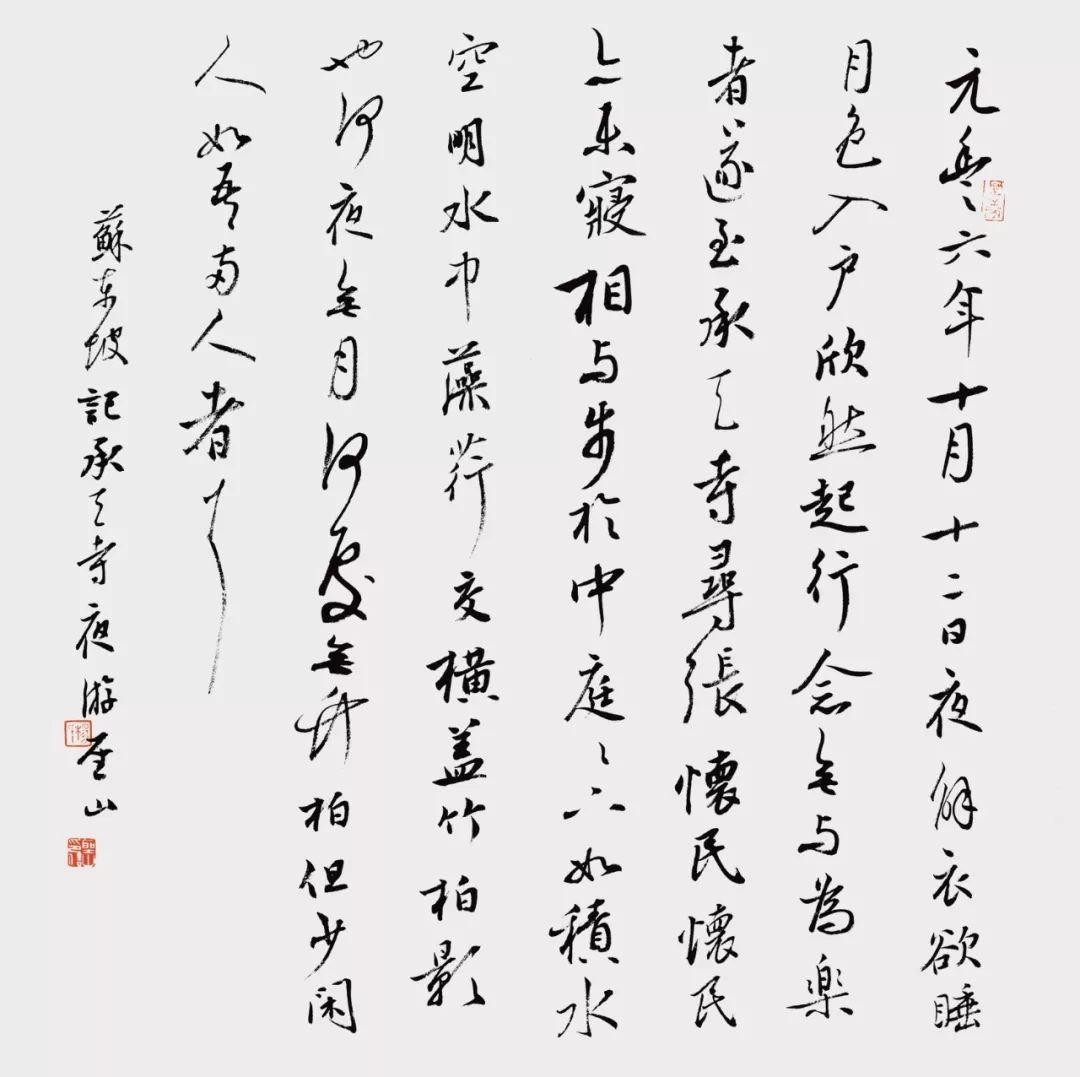 元豐六年十月十二日夜解衣欲睡
月色入户欣然起行念無与為楽
者遂至承天寺尋張懷民懷民
亦未寢相与步於中庭々下如積水
空明水中藻荇交橫盖竹柏影
也何夜無月何處無竹柏但少闲
人如吾兩人者耳
蘇東坡記承天寺夜游 圣山